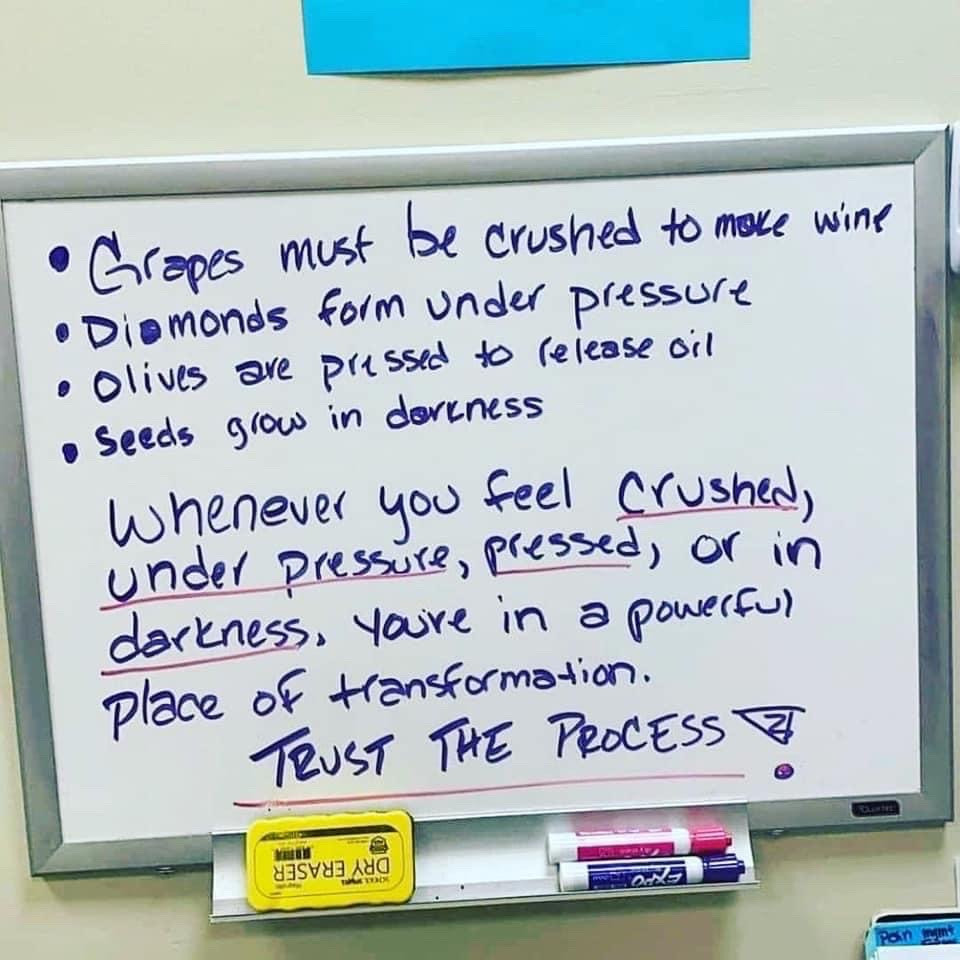 • Grapes must be crushed to make wine
• Diamonds form under pressure
• Olives are pressed to release oil
• Seeds grow in darkness
Whenever you feel crushed,
under pressure, pressed, or in
darkness, you're in a powerful
place of transformation.
TRUST THE PROCESS!
DRY ERASER
EXPO
Pain mgmt